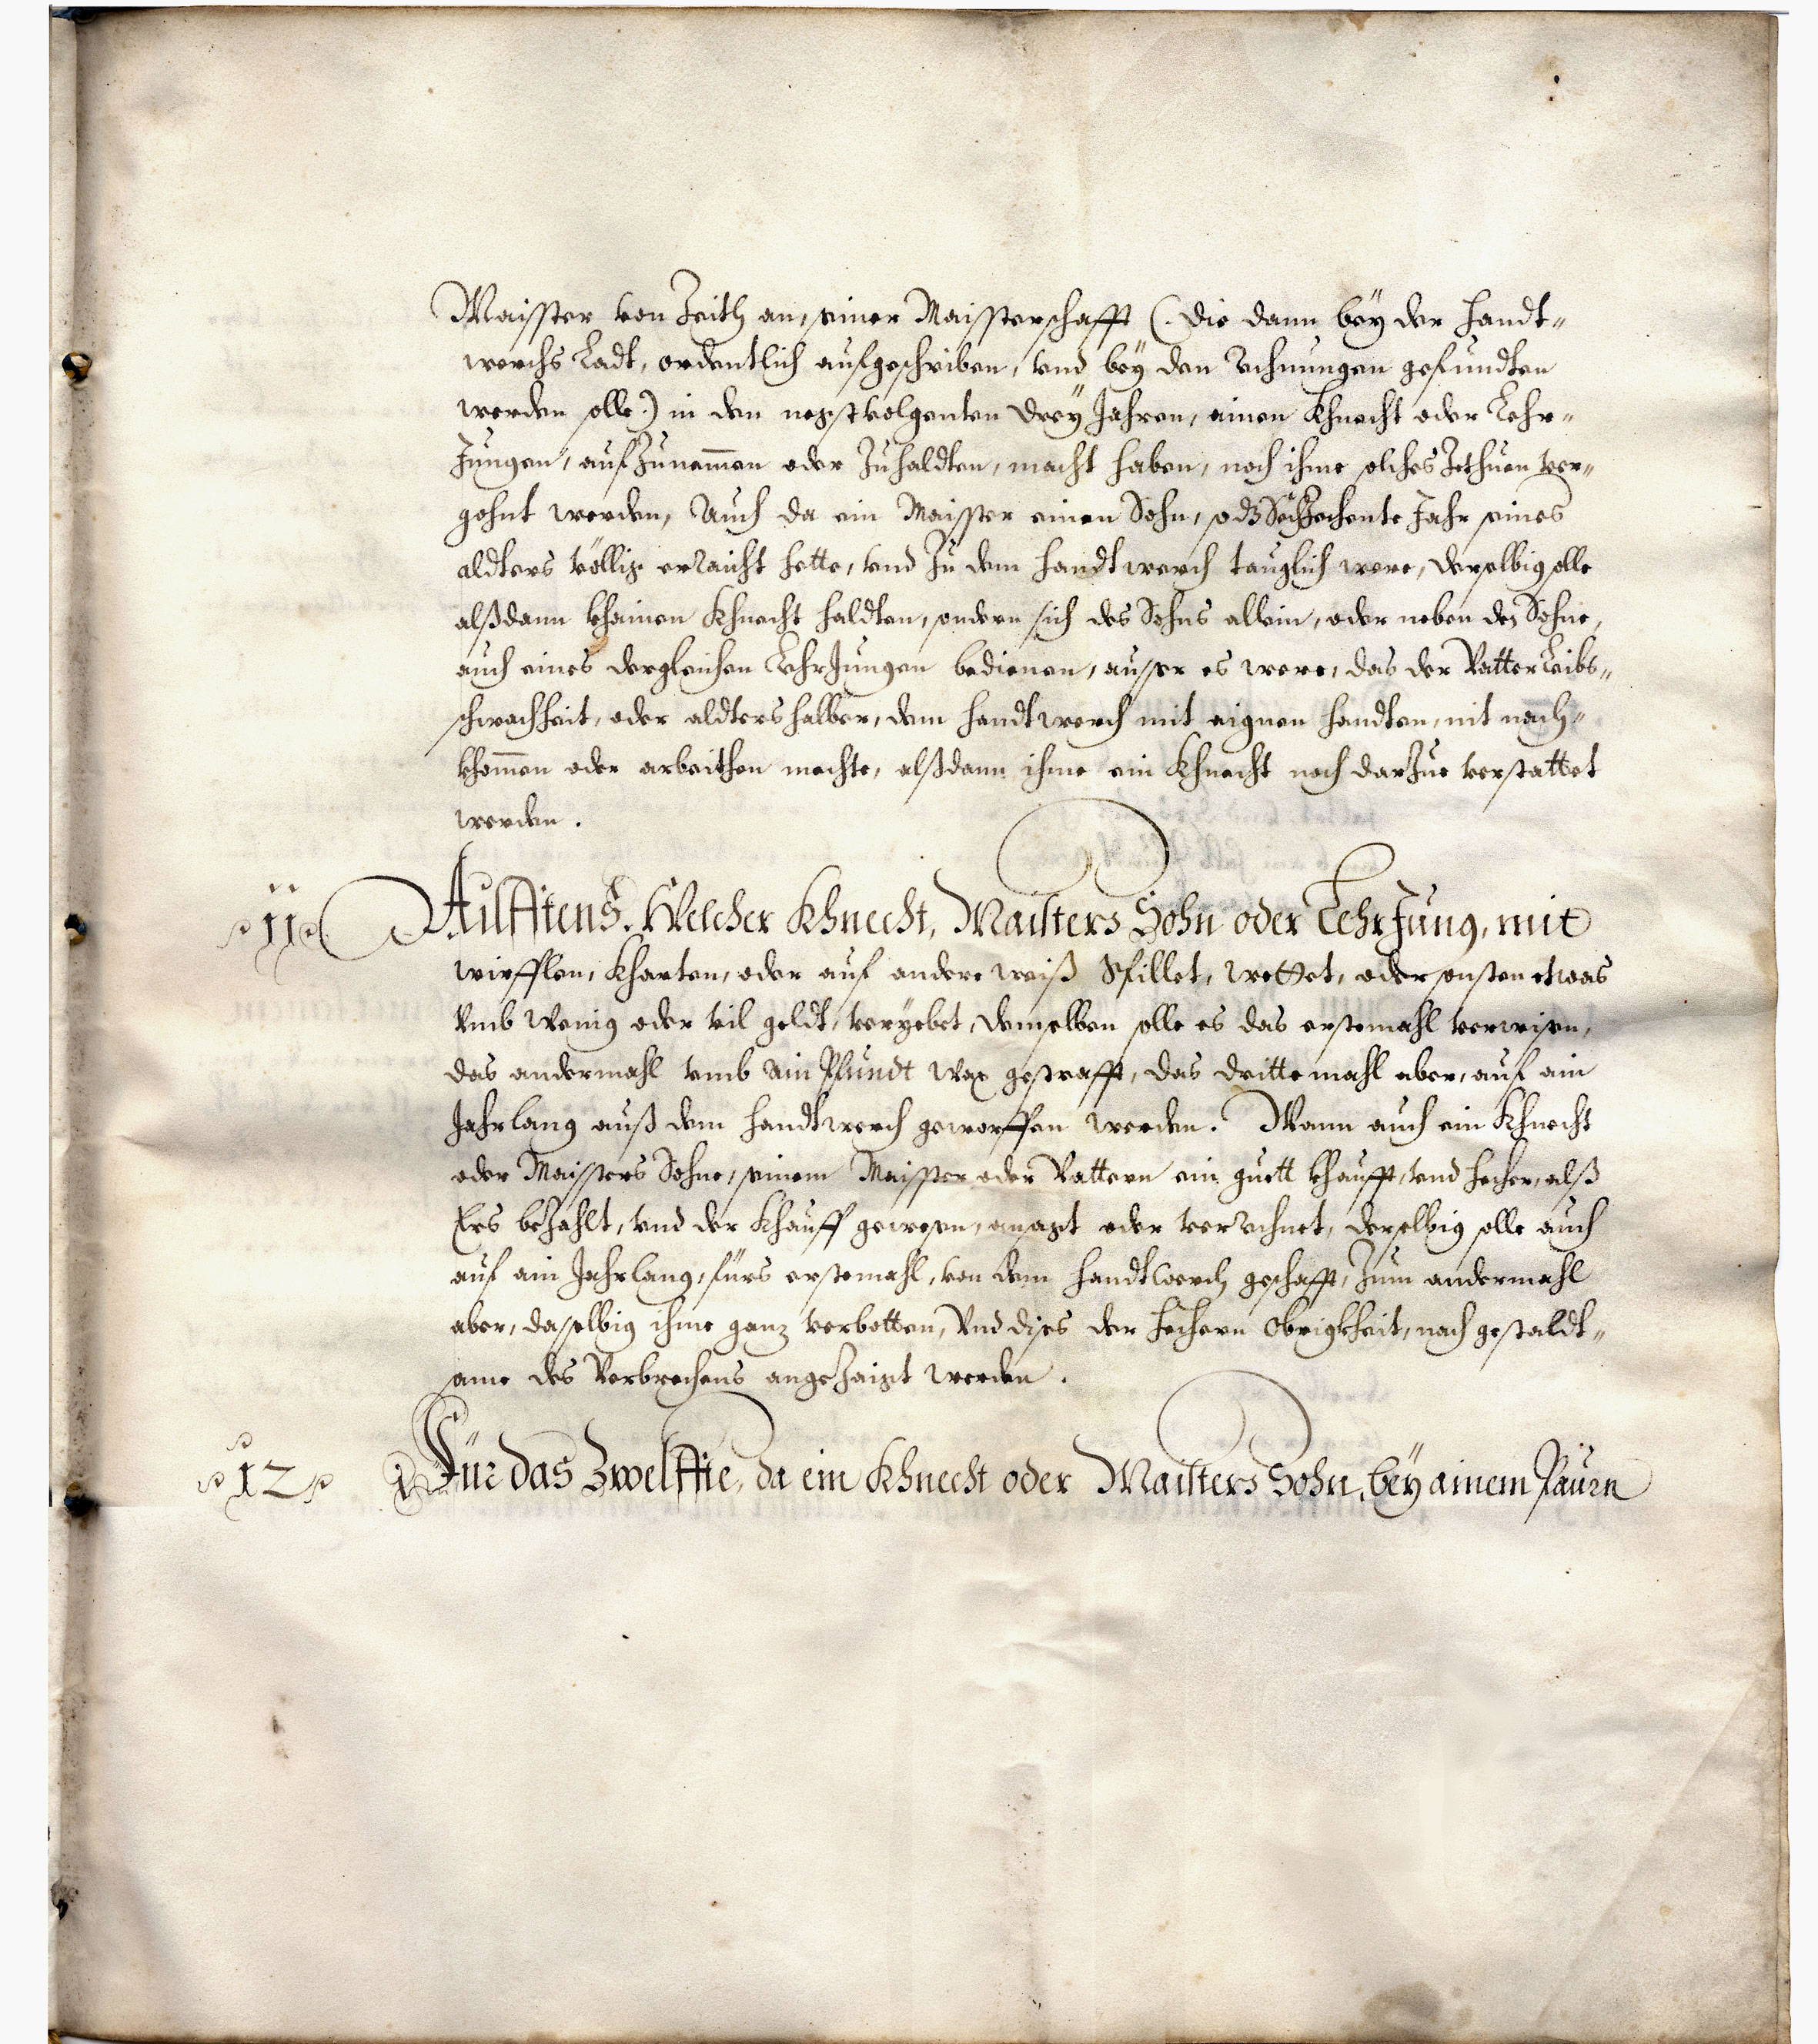 Maisster von Zeith an, seiner Maissterschafft (. die dann beÿ der Handt-
werchs Ladt, ordentlich aufgeschriben, vnd beÿ den Rchnungen gefundten
werden solle.) in den negstvolgenten dreÿ Jahren, einen Khnecht oder Lehr-
Jungen, aufzunemen oder Zuhaldten, macht haben, noch ihme solches Zethuen ver-
gohnt werden, Auch da ein Maisster einen Sohn, so dz Sechzechente Jahr seines
aldters völlig erraicht hette, vnd Zu dem Handtwerch tauglich were, derselbig solle
alßdann khainen Khnecht haldten, sondern sich des Sohns allein, oder neben des Sohne,
auch eines dergleichen LehrJungen bedienen, ausser es were, das der Vatter Leibs-
schwachheit, oder aldtershalber, dem Handtwerch mit aignen Handten, nit nach-
khomen oder arbeithen mechte, alßdann ihme ein Khnecht noch darZue verstattet
werden.
11 Ailfftens. Welcher Khnecht, Maisters Sohn oder LehrJung, mit
wirfflen, Kharten, oder auf andere weiß Spillet, wettet, oder sonsten etwas
Vmb Wenig oder vil geldt, veryebet, demselben solle es das erstemahl verwisen,
das andermahl vmb ain Pfundt Wax gestrafft, das dritte mahl aber, auf ain
Jahrlang auß dem Handtwerch geworffen werden. Wann auch ein Khnecht
oder Maissters Sohne, seinem Maisster oder Vattern ein guett khaufft, vnd hecher, alß
Ers beZahlt, vnd der Khauff gewesen, ansagt oder verrchnet, derselbig solle auch
auf ain Jahrlang, fürs erstemahl, von dem Handtwerch geschafft, Zum andermahl
aber, dasselbig ihme ganz verbotten, Vnd dises der hechern Obrigkheit, nach gestaldt-
same des Verbrechens angeZaigt werden.
12 Für das Zwelffte, da ein Khnecht oder Maisters Sohn, beÿ ainem Paurn